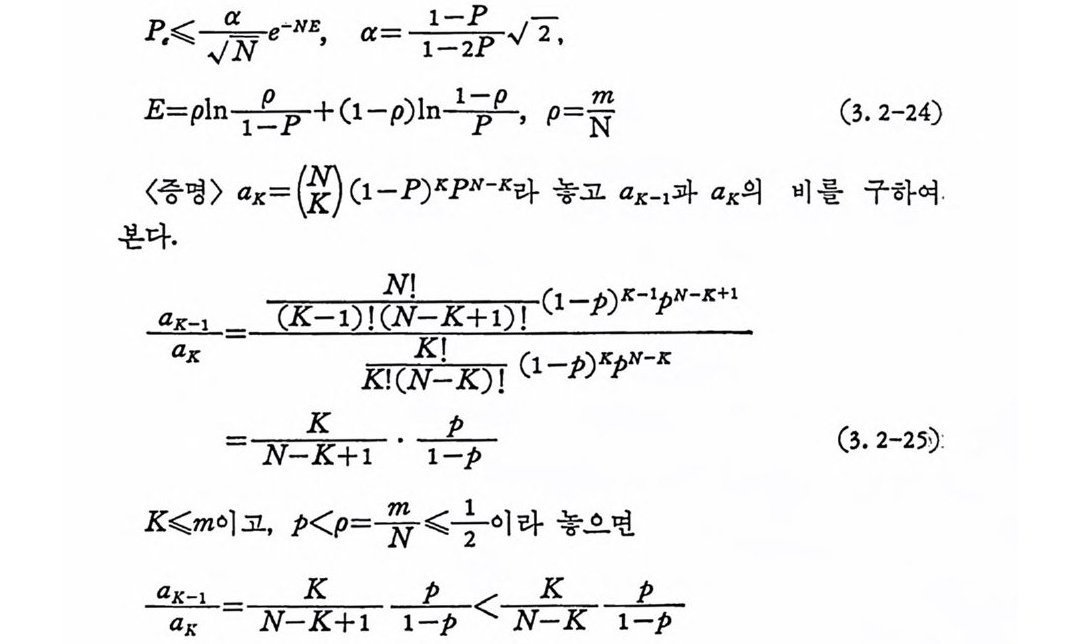 Pₑ≤α/√N e^{-NE}, α=(1-P)/(1-2P)√2,
E=ρln ρ/(1-P)+(1-ρ)ln (1-ρ)/P, ρ=m/N (3. 2-24)
〈증명〉 a_K=(N K)(1-P)^K P^{N-K}라 놓고 a_{K-1}과 a_K의 비를 구하여
본다.
a_{K-1}/a_K = [N!/((K-1)!(N-K+1)!) (1-p)^{K-1}p^{N-K+1}]/[K!/(K!(N-K)!) (1-p)^K p^{N-K}]
=K/(N-K+1) · p/(1-p) (3. 2-25)
K≤m이고, p<ρ=m/N≤1/2이라 놓으면
a_{K-1}/a_K=K/(N-K+1) p/(1-p)<K/(N-K) p/(1-p)